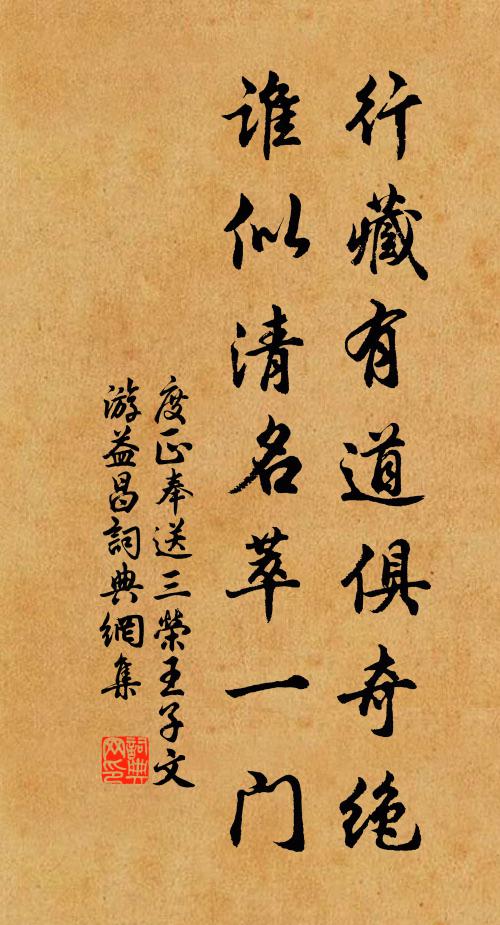 行藏有道俱奇绝
谁似清名萃一门
度正奉送三榮王子文
游益昌詞典網集
詞典网印